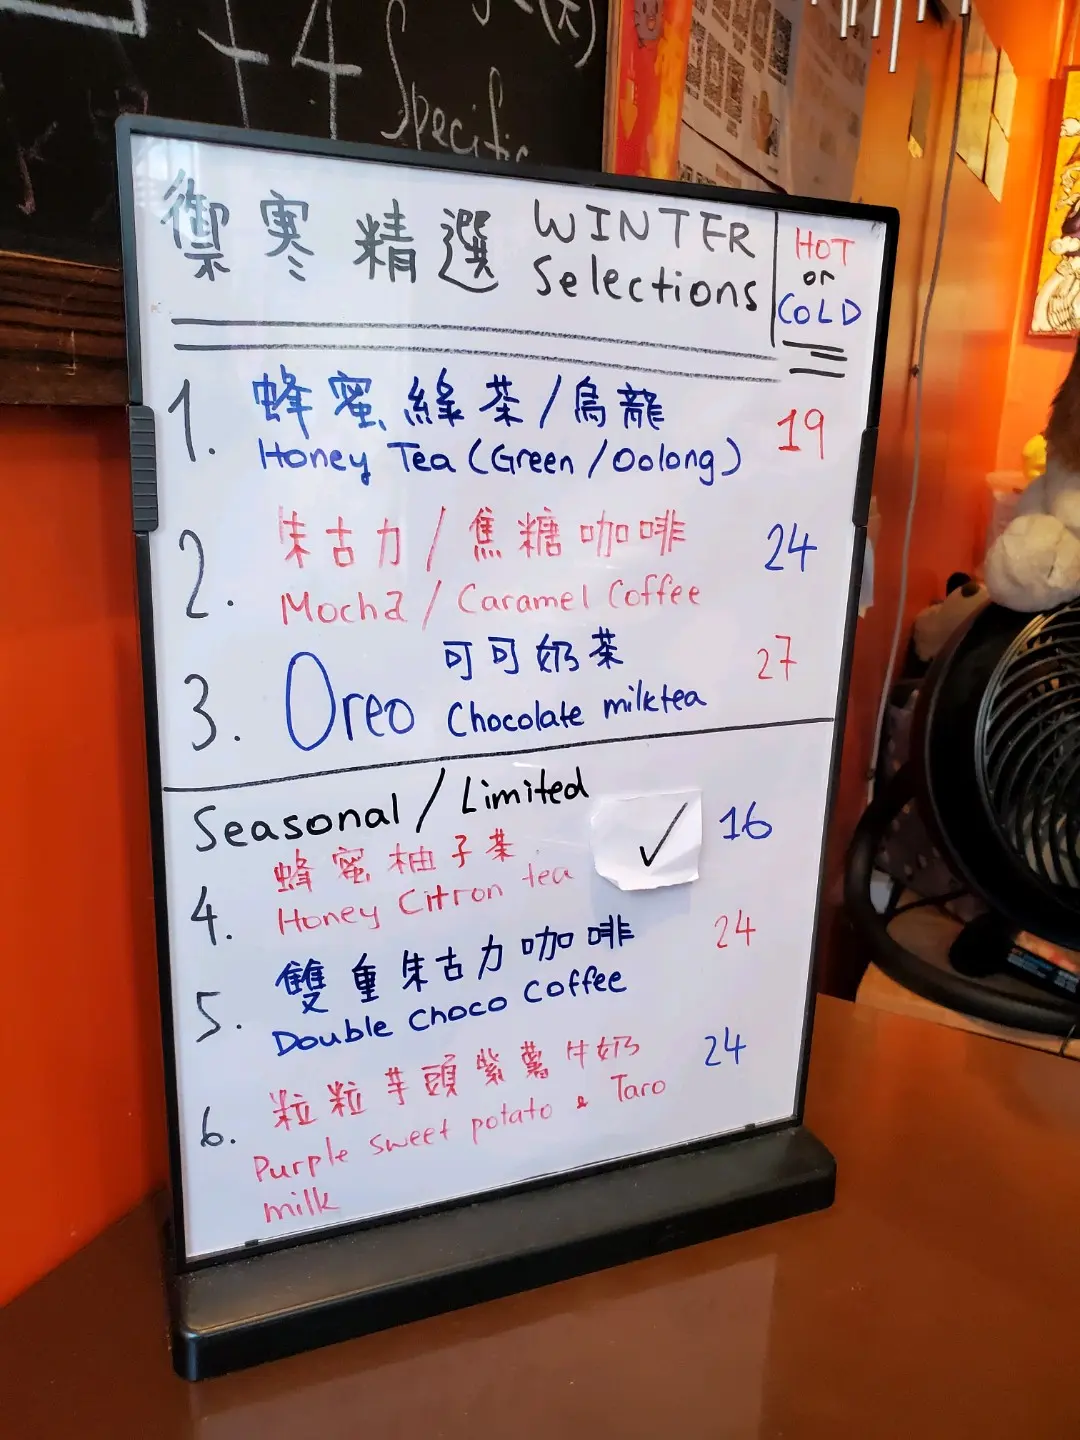 +4 Specific
禦寒精選 WINTER Selections
HOT
or
COLD
1. 蜂蜜綠茶/烏龍 19
Honey Tea (Green/Oolong)
2. 朱古力/焦糖咖啡 24
Mocha/Caramel Coffee
3. Oreo 可可奶茶 27
Chocolate milktea
Seasonal/Limited
4. 蜂蜜柚子茶 ✓ 16
Honey Citron tea
5. 雙重朱古力咖啡 24
Double Choco Coffee
6. 粒粒芋頭紫薯牛奶 24
Purple sweet potato & Taro
milk